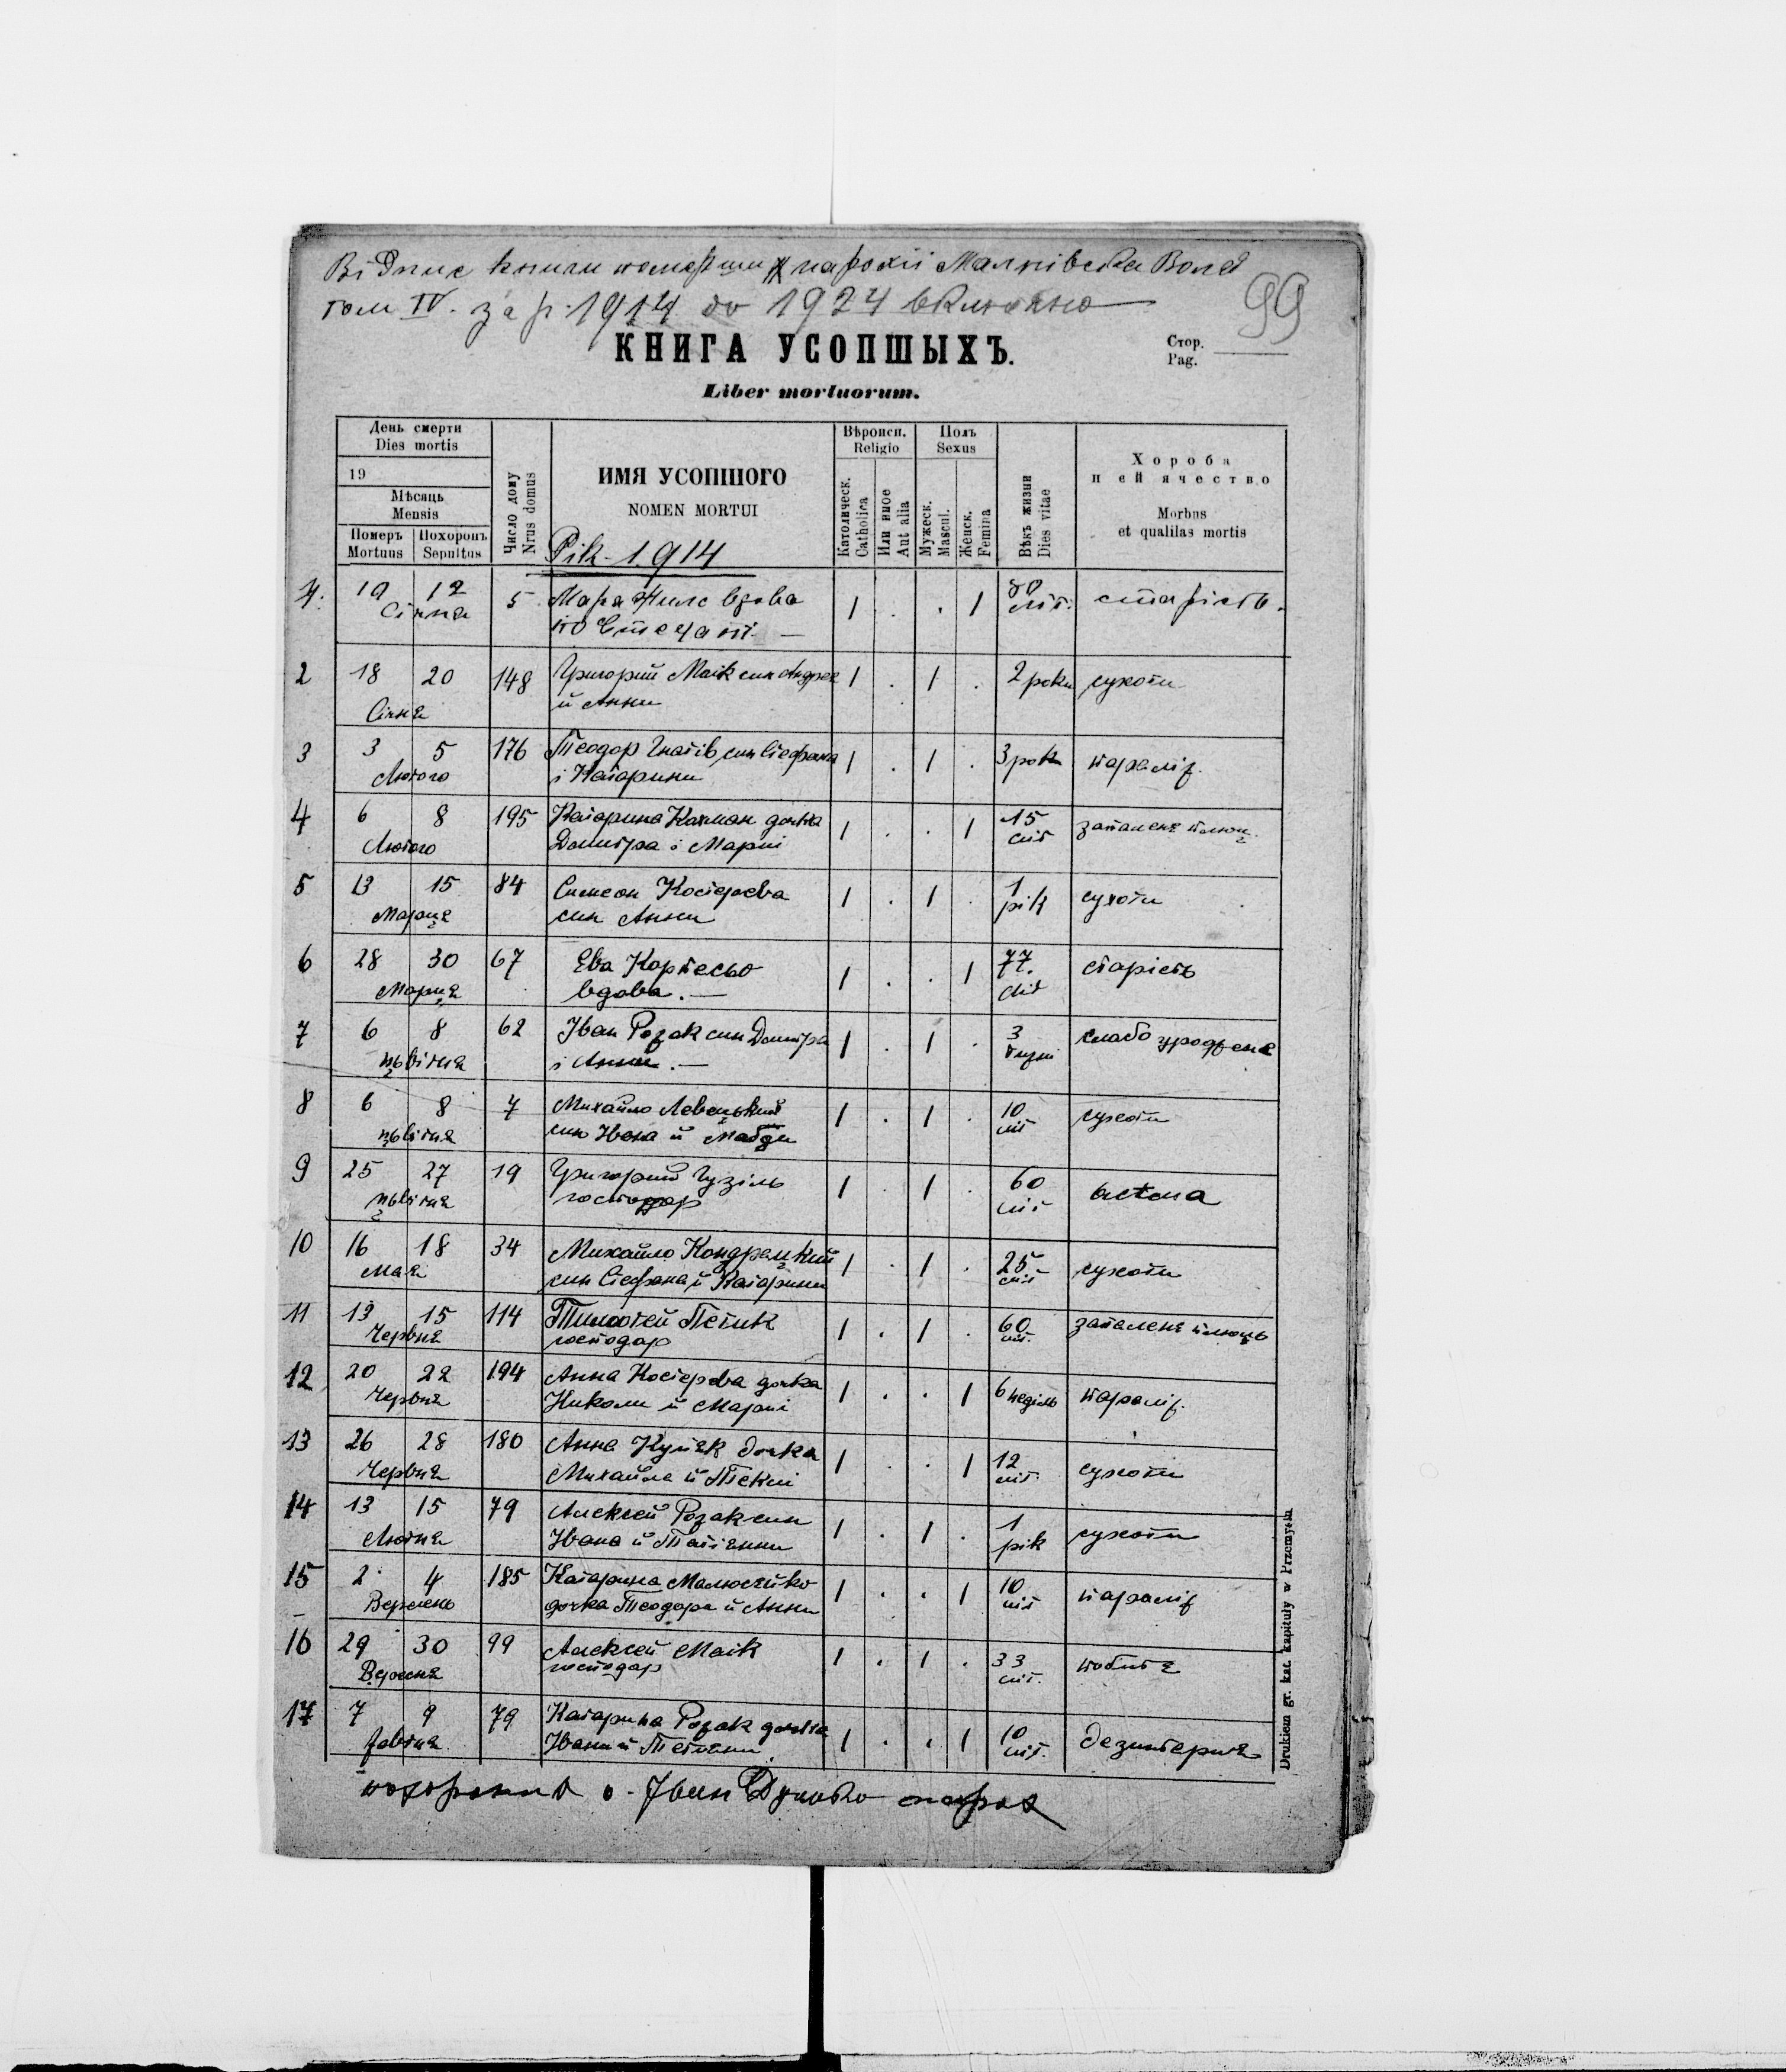 Відпис книги померших парохії Малнівська Воля
том IV. за р. 1914 до 1924 включно
99
КНИГА УСОПШЫХЪ.
Стор.
Pag.
Liber mortuorum.
День смерти
Dies mortis
19
Мѣсяць
Mensis
Померъ
Mortuus
Похоронъ
Sepultus
Число дому
Nrus domus
ИМЯ УСОПШОГО
NOMEN MORTUI
Рік 1914
Вѣроисп.
Religio
Католическ.
Catholica
Или иное
Aut alia
Полъ
Sexus
Мужеск.
Mascul.
Женск.
Femina
Вѣкъ жизни
Dies vitae
Хороба
и ей ячество
Morbus
et qualilas mortis
12 5 вдова 1 . . 1 80 старість.
Січня по літ.
2 18 20 148 Григорий Маїк син Андрея 1 . 1 . 2 роки сухоти
Січня й Анни
3 3 5 176 Теодор Гнатів син Стефана 1 . 1 . 3 рок параліз.
Лютого і Катарини
4 6 8 195 Катарина дочка 1 . . 1 15 запаленя
Лютого Домитра і Марії літ
5 13 15 84 Симеон Костірева 1 . 1 . 1 сухоти
Марця син Анни рік
6 28 30 67 Ева 1 . . 1 77. старість
Марця вдова. — літ
7 6 8 62 Іван Розак син Домитра 1 . 1 . 3 слабо уроджене
цьвітня і Анни. —
8 6 8 7 Михайло 1 . 1 . 10 сухоти
цьвітня син Ивана й літ
9 25 27 19 Григорий Гузіль 1 . 1 . 60 астма
цьвітня господар літ
10 16 18 34 Михайло Кондрацкий 1 . 1 . 25 сухоти
Мая син Стефана й Катарини літ
11 13 15 114 Тимотей Петик 1 . 1 . 60 запаленя
Червня господар літ.
12 20 22 194 Анна Костірева дочка 1 . . 1 6 неділь параліз.
Червня Николи й Марії
13 26 28 180 Анна дочка 1 . . 1 12 сухоти
Червня Михайла й Текли літ.
14 13 15 79 Алексей Розак син 1 . 1 . 1 сухоти
Ивана й Татіянни рік
15 2 4 185 Катарина 1 . . 1 10 параліз
Вересень дочка Теодора й Анни літ
16 29 30 99 Алексей Маїк 1 . 1 . 33
Вересня господар літ.
17 7 9 79 Катарина Розак дочка 1 . . 1 10 дезинтерия
Ивана й літ.
похоронив о. Іван парох
Drukiem gr. kat. kapituły w Przemyślu